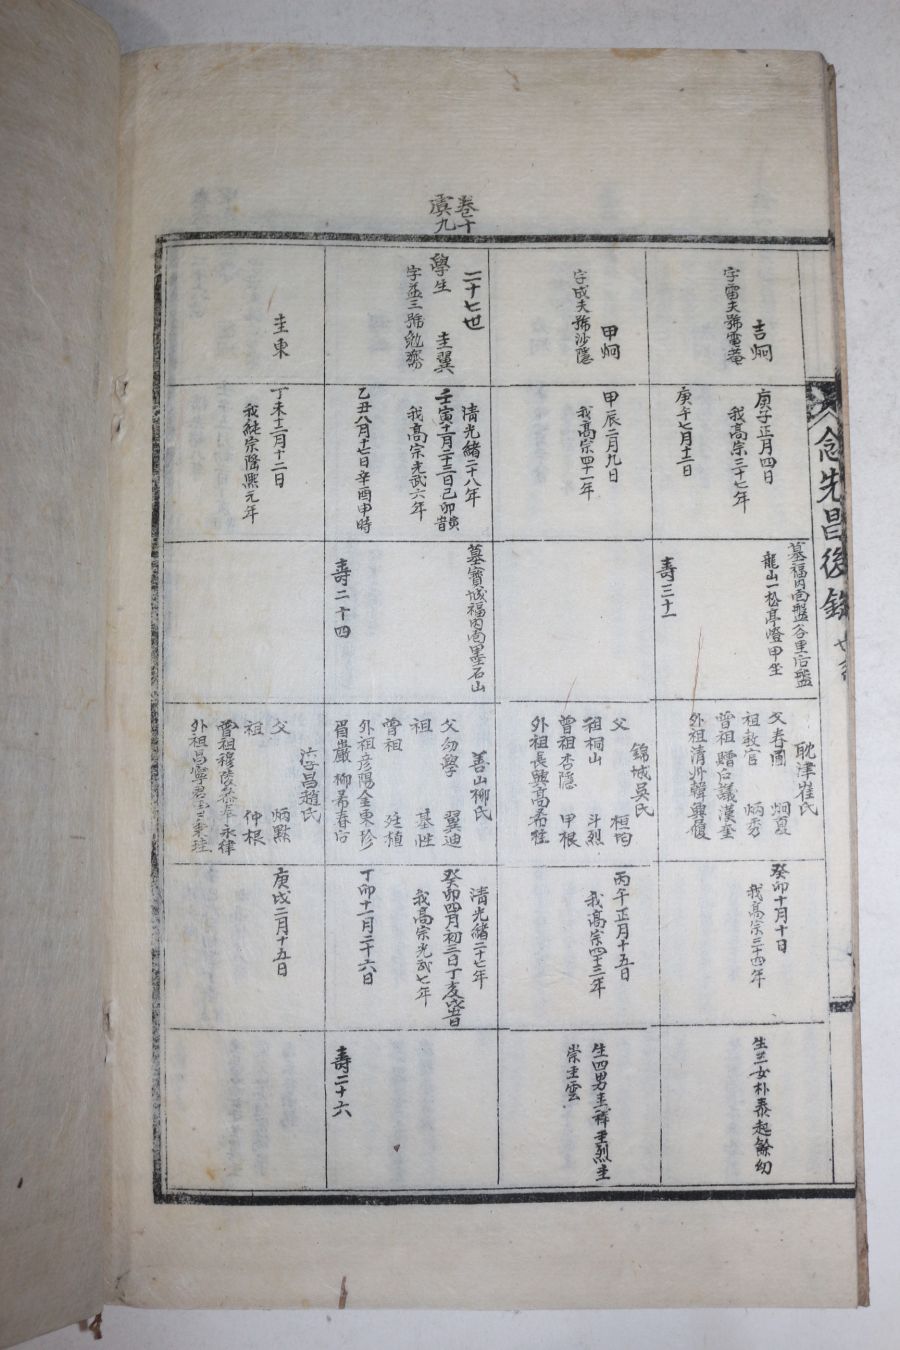 卷十
虞九
念先昌後錄
吉炯
字雷夫號電菴
庚子正月四日
我高宗三十七年
庚午七月十二日
墓福內面盤谷里后盤
龍山一松亭嶝甲坐
壽三十一
耽津崔氏
父春圃 炯夏
祖教官 炳秀
曾祖贈右議漢奎
外祖清州韓興履
癸卯十月十日
我高宗三十四年
生三女朴泰起餘幼
甲炯
字成夫號沙隱
甲辰二月九日
我高宗四十一年
錦城吳氏
父 桓均
祖桐山 斗烈
曾祖杏隱 甲根
外祖長興高希柱
丙午正月十五日
我高宗四十三年
生四男圭釋圭烈圭
崇圭雲
二十七世
學生 圭翼
字益三號勉齋
清光緒二十八年
壬寅十一月二十三日己卯寅時
我高宗光武六年
乙丑八月十七日辛酉申時
墓寶城福內面墨石山
壽二十四
善山柳氏
父幼學 翼迪
祖 基性
曾祖 廷植
外祖彦陽金東珍
眉巖 柳希春后
清光緒二十七年
癸卯四月初三日丁亥戌時
我高宗光武七年
丁卯十一月二十六日
壽二十六
圭東
丁未十二月十二日
我純宗隆熙元年
淳昌趙氏
父 炳點
祖 仲根
曾祖穆陵參奉永律
外祖昌寧君
庚戌二月十五日